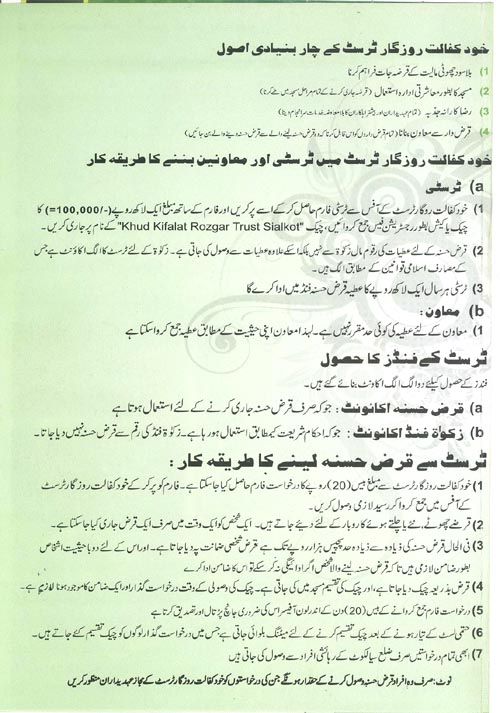 خود کفالت روزگار ٹرسٹ کے چار بنیادی اصول
1) بلاسود چھوٹی مالیت کے قرضہ جات فراہم کرنا
2) مسجد کا بطور معاشرتی ادارہ استعمال (قرضہ جاری کرنے کے تمام مراحل مسجد میں طے کرنا)
3) رضا کارانہ جذبہ (تمام عہدیداران اور بیشتر اہلکاران کا بلا معاوضہ خدمات سرانجام دینا)
4) قرض دار سے معاون بنانا (تمام قرض داروں کو اس قابل کرنا کہ وہ قرض حسنہ لینے والے سے قرض حسنہ دینے والے بن جائیں)
خود کفالت روزگار ٹرسٹ میں ٹرسٹی اور معاونین بننے کا طریقہ کار
a) ٹرسٹی
1) خود کفالت روزگار ٹرسٹ کے آفس سے ٹرسٹی فارم حاصل کر کے اسے پر کریں اور فارم کے ساتھ مبلغ ایک لاکھ روپے (-/100,000=) کا
چیک یا کیش بطور رجسٹریشن فیس جمع کروائیں، چیک "Khud Kifalat Rozgar Trust Sialkot" کے نام پر جاری کریں۔
2) قرض حسنہ کے لئے عطیات کی رقوم مال زکوٰۃ سے نہیں بلکہ اسکے علاوہ عطیات سے وصول کی جاتی ہے۔ زکوٰۃ کے لئے ٹرسٹ کا الگ اکاؤنٹ ہے جس
کے مصارف اسلامی قوانین کے مطابق الگ ہیں۔
3) ٹرسٹی ہر سال ایک لاکھ روپے کا عطیہ قرض حسنہ فنڈ میں ادا کرے گا
b) معاون:
1) معاون کے لئے عطیہ کی کوئی حد مقرر نہیں ہے۔ لہذا معاون اپنی حیثیت کے مطابق عطیہ جمع کروا سکتا ہے
ٹرسٹ کے فنڈز کا حصول
فنڈز کے حصول کیلئے دو الگ الگ اکاونٹ بنائے گئے ہیں۔
a) قرض حسنہ اکانونٹ: جو کہ صرف قرض حسنہ جاری کرنے کے لئے استعمال ہوتا ہے
b) زکوٰۃ فنڈ اکانونٹ: جو کہ احکام شریعت کیمطابق استعمال ہو رہا ہے۔ زکوٰۃ فنڈ کی رقم سے قرض حسنہ نہیں دیا جاتا۔
ٹرسٹ سے قرض حسنہ لینے کا طریقہ کار:
1) خود کفالت روزگار ٹرسٹ سے مبلغ بیس (20) روپے کا درخواست فارم حاصل کیا جا سکتا ہے۔ فارم کو پر کر کے خود کفالت روزگار ٹرسٹ
کے آفس میں جمع کروا کر رسید لازمی وصول کریں۔
2) قرضے چھوٹے، نئے یا چلتے ہوئے کاروبار کے لئے دیئے جاتے ہیں۔ ایک شخص کو ایک وقت میں صرف ایک قرض جاری کیا جا سکتا ہے۔
3) فی الحال قرض حسنہ کی زیادہ سے زیادہ حد پچیس ہزار روپے تک ہے قرض شخصی ضمانت پہ دیا جاتا ہے۔ اور اس کے لئے دو باحیثیت اشخاص
بطور ضامن لازمی ہیں تاکہ قرض حسنہ لینے والا شخص اگر ادائیگی نہ کر سکے تو اس کا ضامن ادا کرے
4) قرض بذریعہ چیک دیا جاتا ہے، اور چیک کی تقسیم مسجد میں کی جاتی ہے۔ چیک کی وصولی کے وقت درخواست گذار اور ایک ضامن کا موجود ہونا لازم ہے۔
5) درخواست فارم جمع کروانے کے بیس (20) دن کے اندر لون آفیسر اس کی ضروری جانچ پڑتال اور تصدیق کرتا ہے
6) حتمی لسٹ کے تیار ہونے کے بعد چیک تقسیم کرنے کے لئے میٹنگ بلوائی جاتی ہے جس میں درخواست گذار لوگوں کو چیک تقسیم کئے جاتے ہیں۔
7) ابھی تمام درخواستیں صرف ضلع سیالکوٹ کے رہائشی افراد سے وصول کی جاتی ہیں
نوٹ: صرف وہ افراد قرض حسنہ وصول کرنے کے حقدار ہونگے جن کی درخواستوں کو خود کفالت روزگار ٹرسٹ کے مجاز عہدیداران منظور کریں